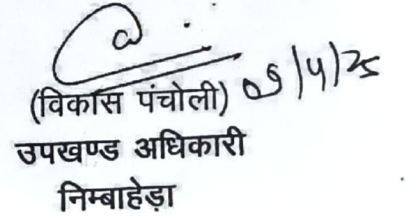 (विकास पंचोली) 09/4/25
उपखण्ड अधिकारी
निम्बाहेड़ा